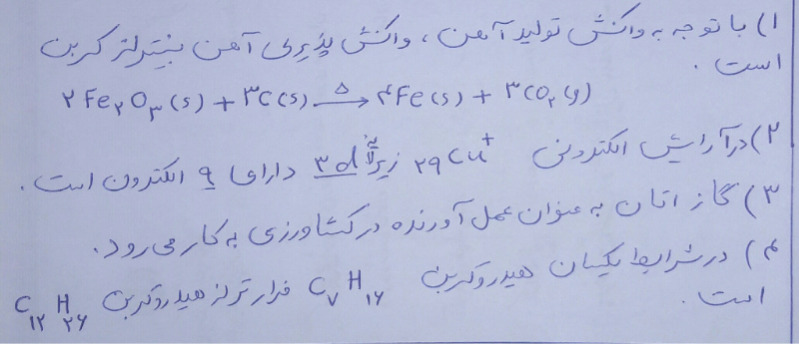 ۱) با توجه به واکنش تولید آهن، واکنش پذیری آهن بیشتر از کربن
است.
۲Fe۲O۳(s) + ۳C(s) →Δ ۴Fe(s) + ۳CO۲(g)
۲) در آرایش الکترونی ۲۹Cu+ زیرلایهٔ ۳d دارای ۹ الکترون است.
۳) گاز اتان به عنوان عمل آورنده در کشاورزی به کار می رود.
۴) در شرایط یکسان هیدروکربن C۷H۱۶ فرارتر از هیدروکربن C۱۲H۲۶
است.